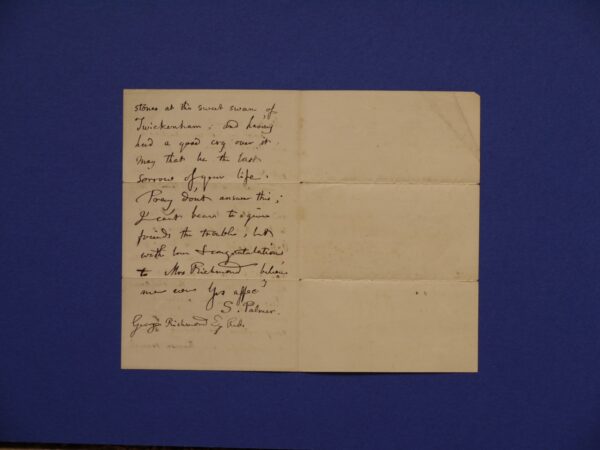 stones at this sweet swan of
Twickenham; and having
had a good cry over it
may that be the last
sorrow of your life.
Pray don't answer this;
I can't bear to give
friends the trouble, but
with love & congratulations
to Mrs Richmond believe
me ever Yrs affec
S. Palmer.
George Richmond Esq